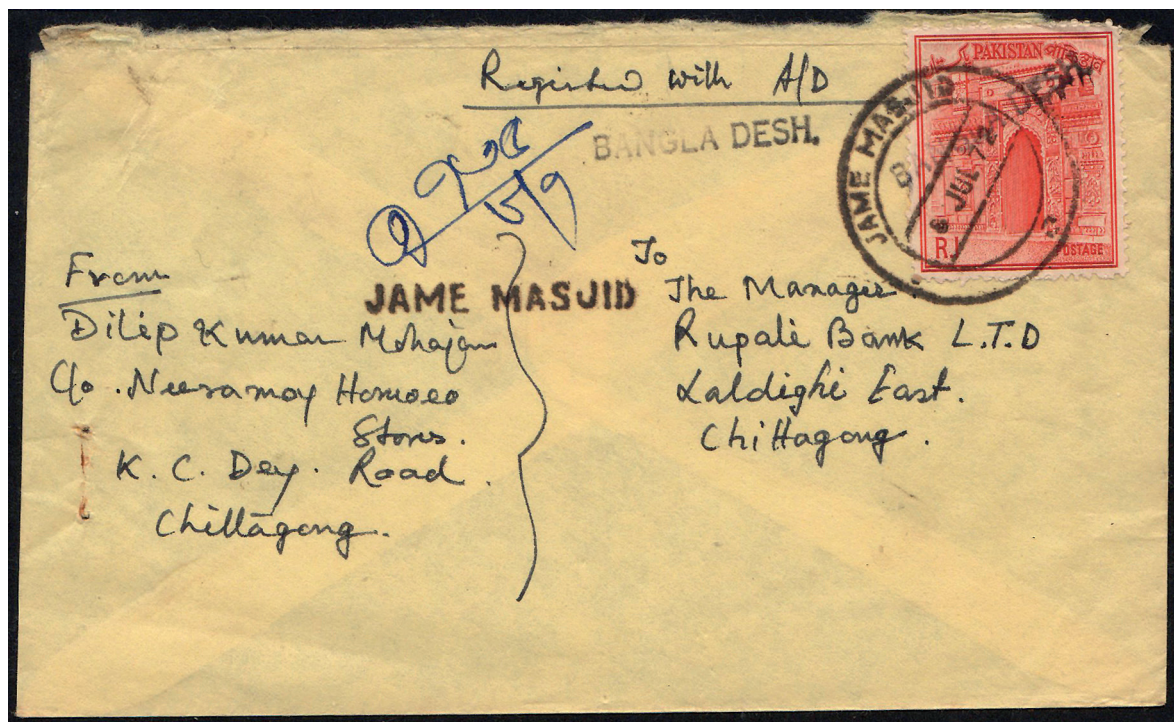 Registered with A/D
BANGLA DESH.
PAKISTAN পাকিস্তান
R1
POSTAGE
JAME MASJID
8 JUL 72
JAME MASJID
From
Dilip Kumar Mohajan
C/o. Neeramoy Homoeo
Stores.
K. C. Dey. Road.
Chittagong.
To
The Manager.
Rupali Bank L.T.D
Laldighi East.
Chittagong.